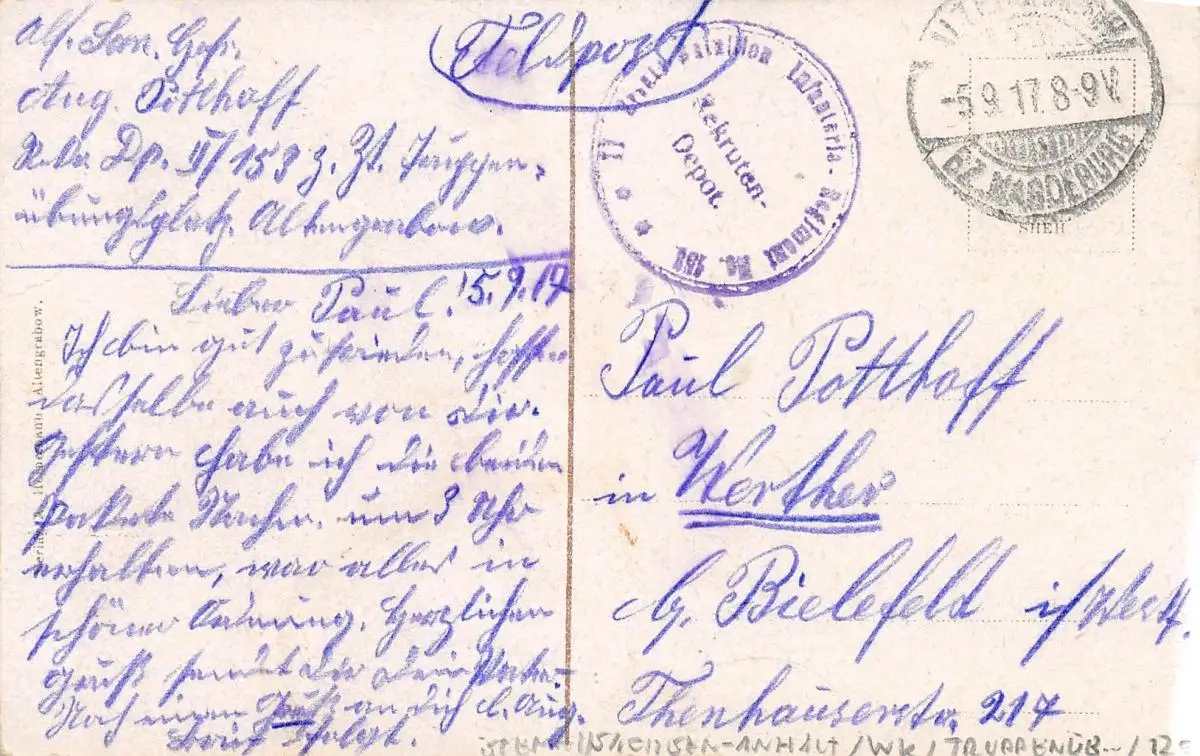 Feldpost
Abs. Gefr.
Aug. Potthoff
Rekr. Dp. II/153 z. Zt. Truppen-
übungsplatz Altengrabow.
Lieber Paul! 5.9.17
Ich bin gut zufrieden, hoffe
dasselbe auch von Dir.
Gestern habe ich die beiden
Pakete Nachm. um 3 Uhr
erhalten, war alles in
schöner Ordnung. Herzlichen
Gruß sendet Dir Dein Vater
Noch einen Gruß an dich l. Aug.
Brief folgt.
Altengrabow.
Infanterie-Regiment No. 153
Rekruten-
Depot.
-5.9.17.8-9V.
BZ. MAGDEBURG
SHEH
Paul Potthoff
in Werther
b/ Bielefeld i/Westf.
Thenhauserstr. 217
SACHSEN-ANHALT / WK / TRUPPENÜB